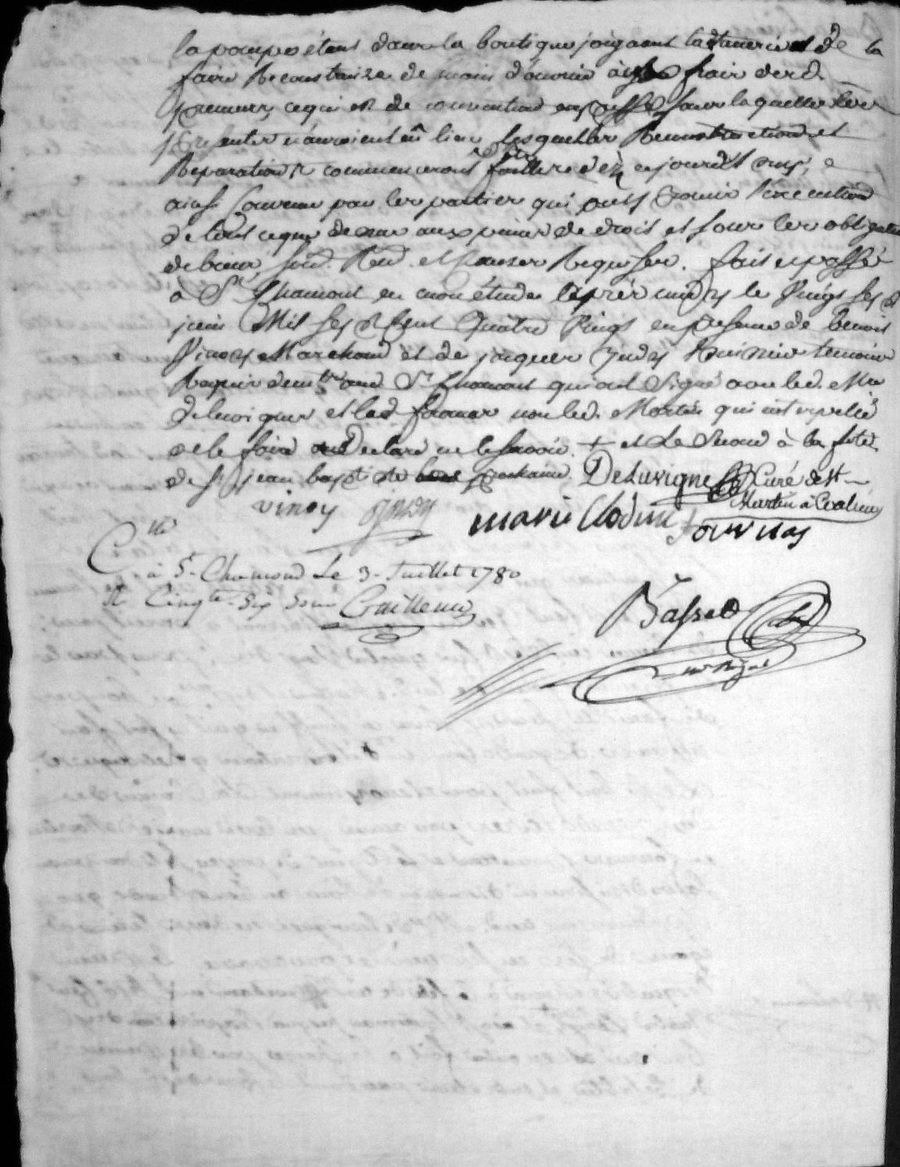 la pompe étant dans la boutique joignant la tannerie et de la
faire Reconstruire de main d'ouvrier à frais dud.
premier, ce qui est de convention expresse sans laquelle les
présentes n'auroient eû lieu, lesquelles Reconstructions et
Reparations commenceront dez aujourd'huy,
ainsi Convenu par les parties qui ont promis l'execution
de tout ce que dessus aux peines de droit et sous les obligations
de biens, soum. Ren. et clauses Requises. fait et passé
à St Chamont en mon étude après midy le Vingt six
juin Mil sept Cent Quatre Vingt en presence de benoit
Vinoy Marchand et de jaques huissier temoins
Requis demts aud. St Chamont qui ont signé avec led. Mre
deluvigne et lad. fournas non led. Martin qui interpellé
de le faire a declaré ne le savoir. + et le second à la fête
de St jean baptiste prochaine. DeLuvigne Curé de St
Martin à Coalieu
vinoy
marie Clodine fournas
Cllé
à St. Chamond Le 3. Juillet 1780
R. Cinqte. Six sous
Basset